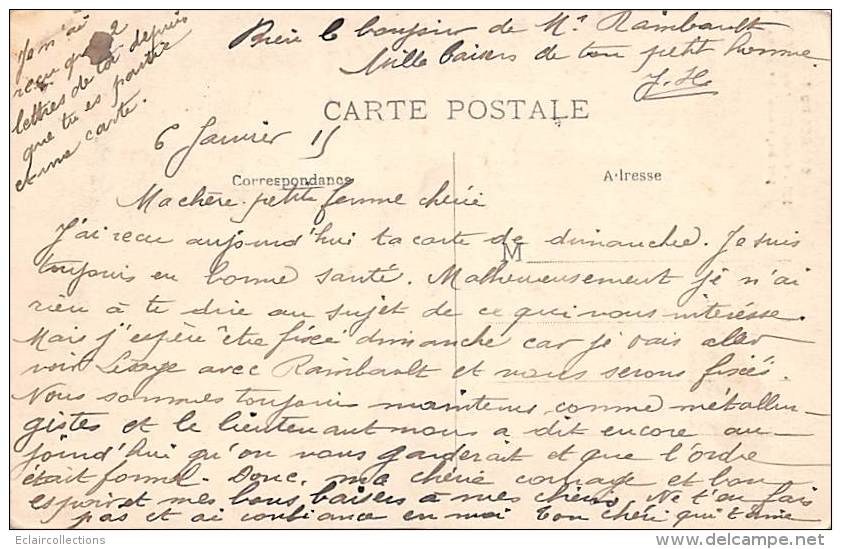 Je n'ai
reçu que 2
lettres de toi depuis
que tu es partie
et une carte.
le bonjour de Mr Raimbault
Mille baisers de ton petit homme
J. H.
CARTE POSTALE
6 Janvier 15
Correspondance
Adresse
M
Ma chère petite femme chérie
J'ai reçu aujourd'hui ta carte de dimanche. Je suis
toujours en bonne santé. Malheureusement je n'ai
rien à te dire au sujet de ce qui nous intéresse.
Mais j'espère être fixé dimanche car je vais aller
voir Lesage avec Raimbault et nous serons fixés.
Nous sommes toujours maintenus comme métallur-
gistes et le lieutenant nous a dit encore au-
jourd'hui qu'on nous garderait et que l'ordre
était formel. Donc, ma chérie courage et bon
espoir et mes bons baisers à mes chéris. Ne t'en fais
pas et ai confiance en moi Ton chéri qui t'aime
Eclaircollections